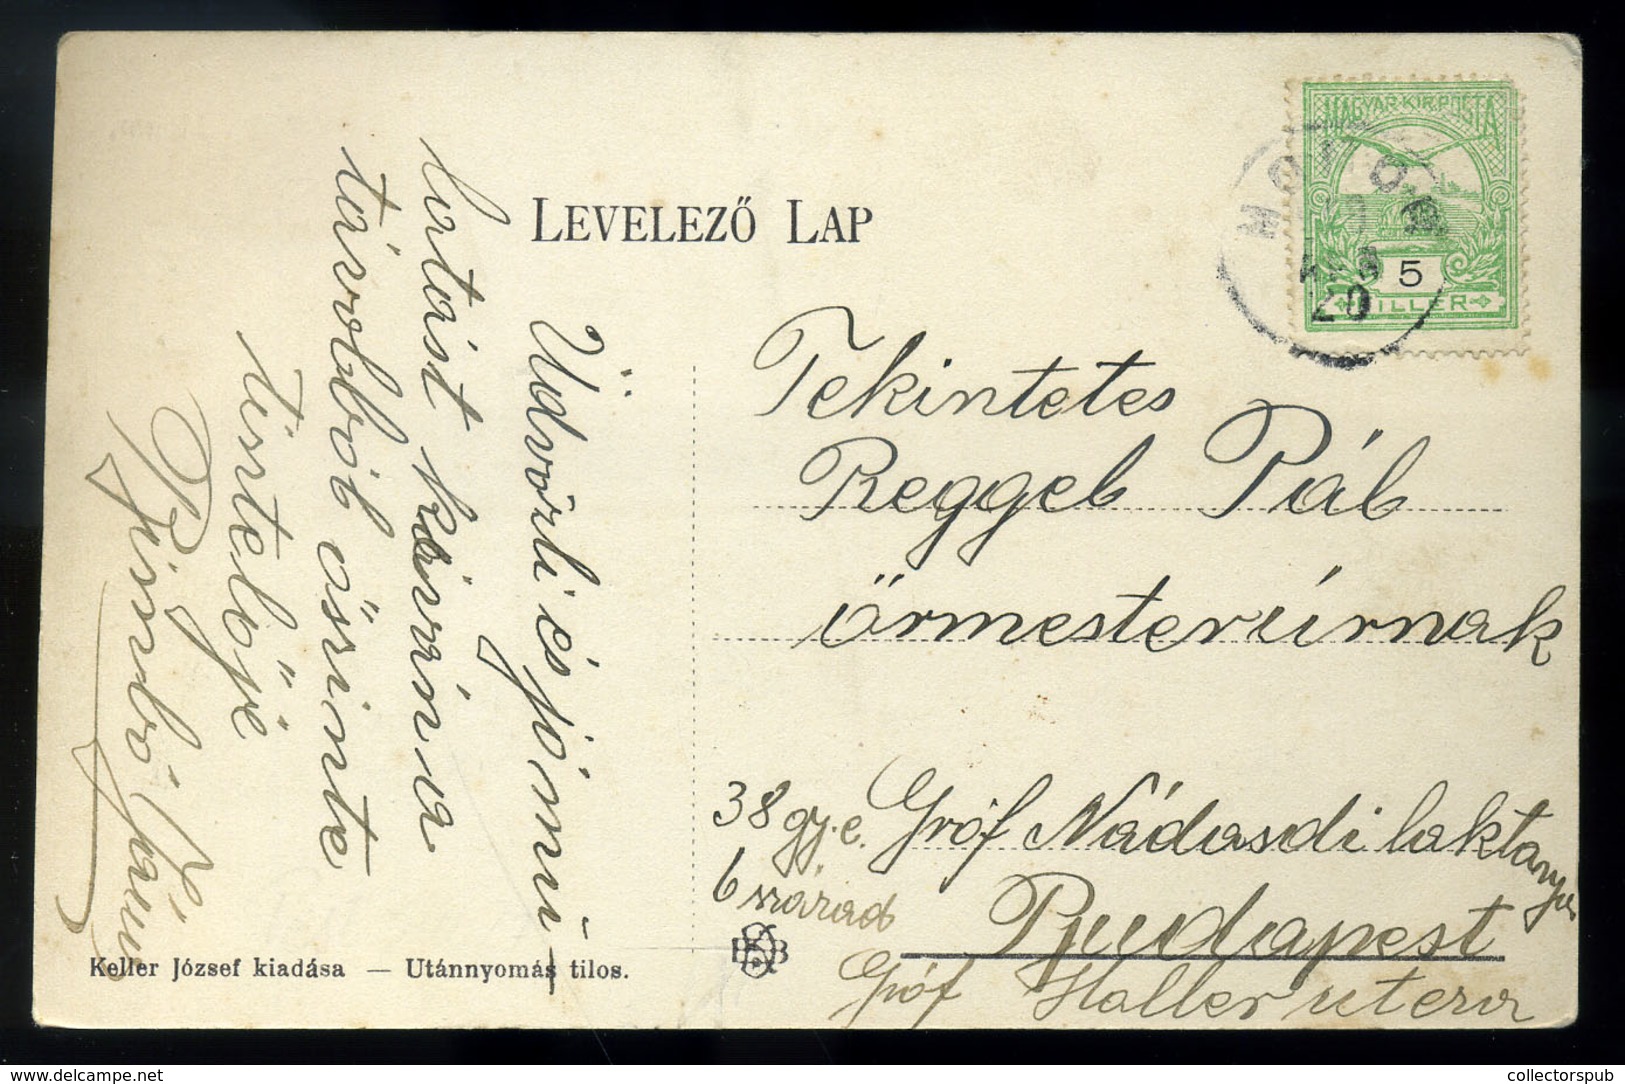 LEVELEZŐ LAP
MAGYAR·KIR·POSTA
5
FILLÉR
Üdvözli és jó mú-
latást kívána
távolból őszinte
tisztelője
János
Tekintetes
Reggel Pál
őrmesterúrnak
38 gy. e. Gróf Nádasdi laktanya
6 század
Budapest
Gróf Haller utcza
Keller József kiadása — Utánnyomás tilos.
www.delcampe.net
collectorspub